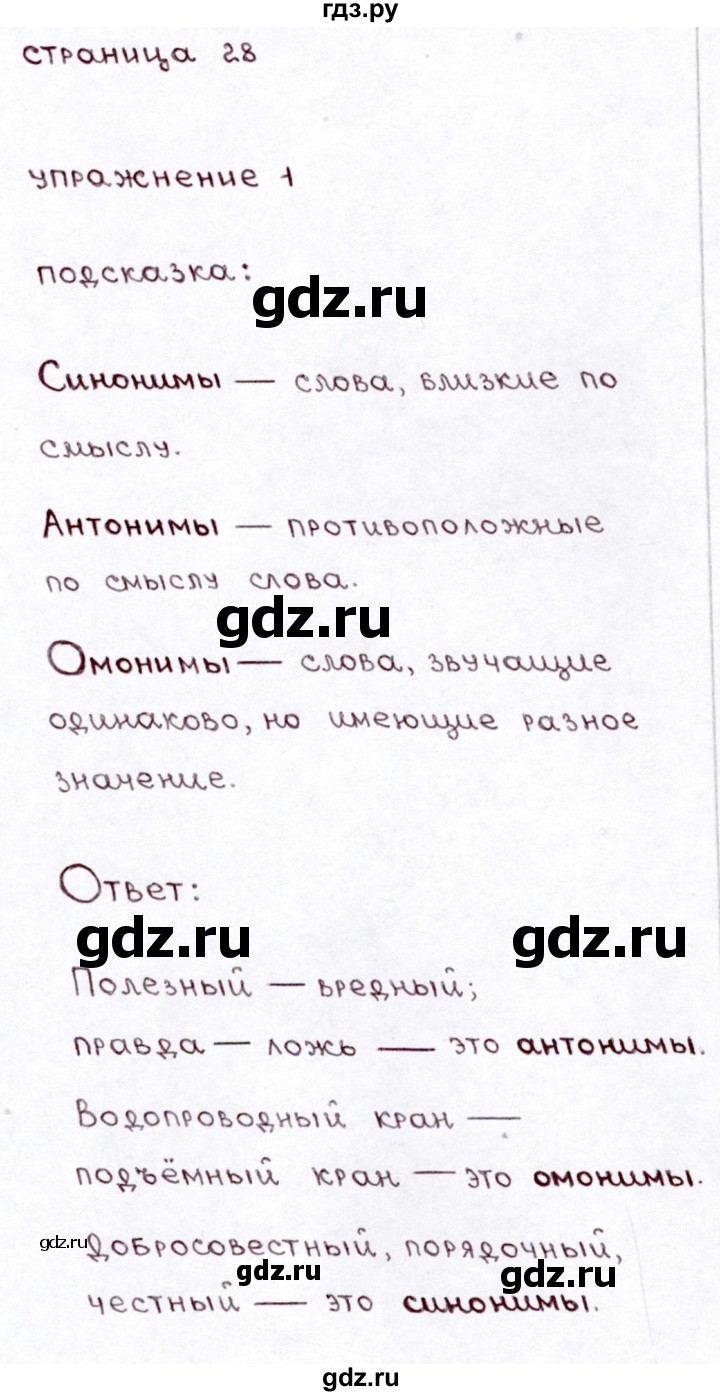 гдз.ру
страница 28
упражнение 1
подсказка:
gdz.ru
Синонимы — слова, близкие по
смыслу.
Антонимы — противоположные
по смыслу слова.
gdz.ru
Омонимы — слова, звучащие
одинаково, но имеющие разное
значение.
Ответ:
gdz.ru gdz.ru
Полезный — вредный;
правда — ложь — это антонимы.
Водопроводный кран —
подъёмный кран — это омонимы.
gdz.ru
добросовестный, порядочный,
gdz.ru gdz.ru
честный — это синонимы.
gdz.ru